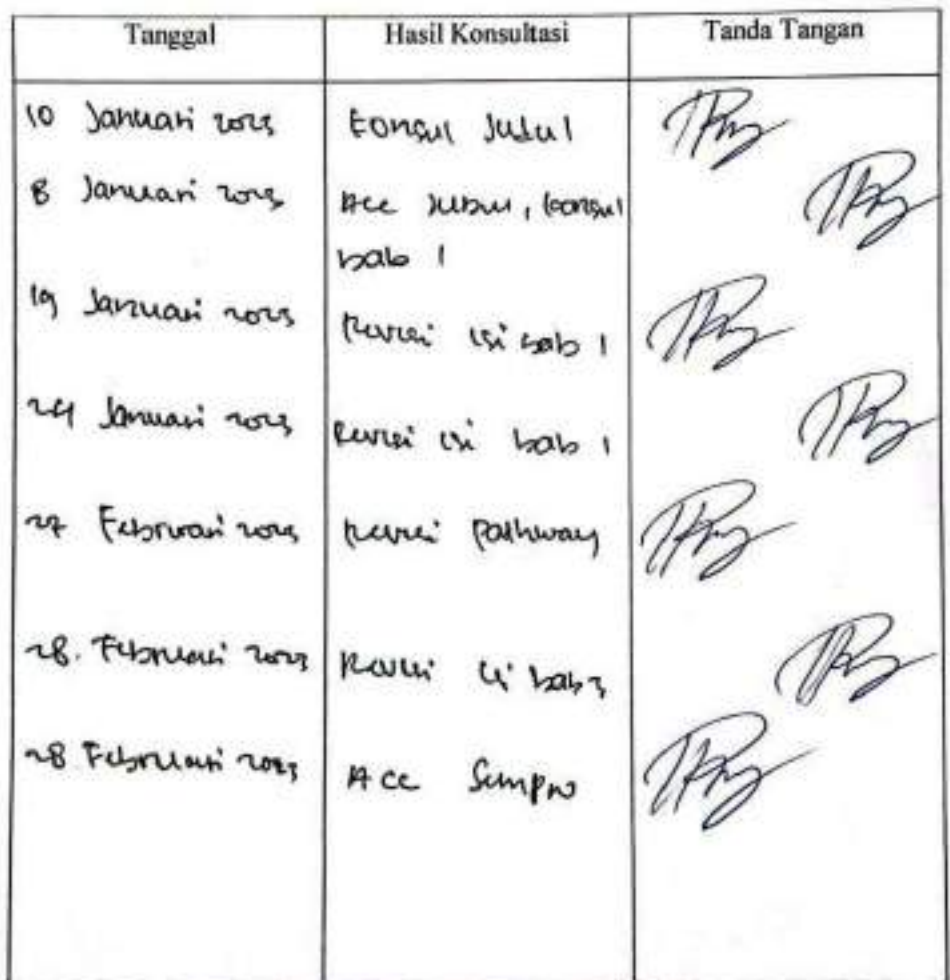 Tanggal Hasil Konsultasi Tanda Tangan
10 Januari 2023 Konsul Judul
8 Januari 2023 Acc Judul, konsul
bab 1
19 Januari 2023 Revisi isi bab 1
24 Januari 2023 Revisi isi bab 1
27 Februari 2023 Revisi Pathway
28. Februari 2023 Revisi isi bab 3
28 Februari 2023 Acc Sempro